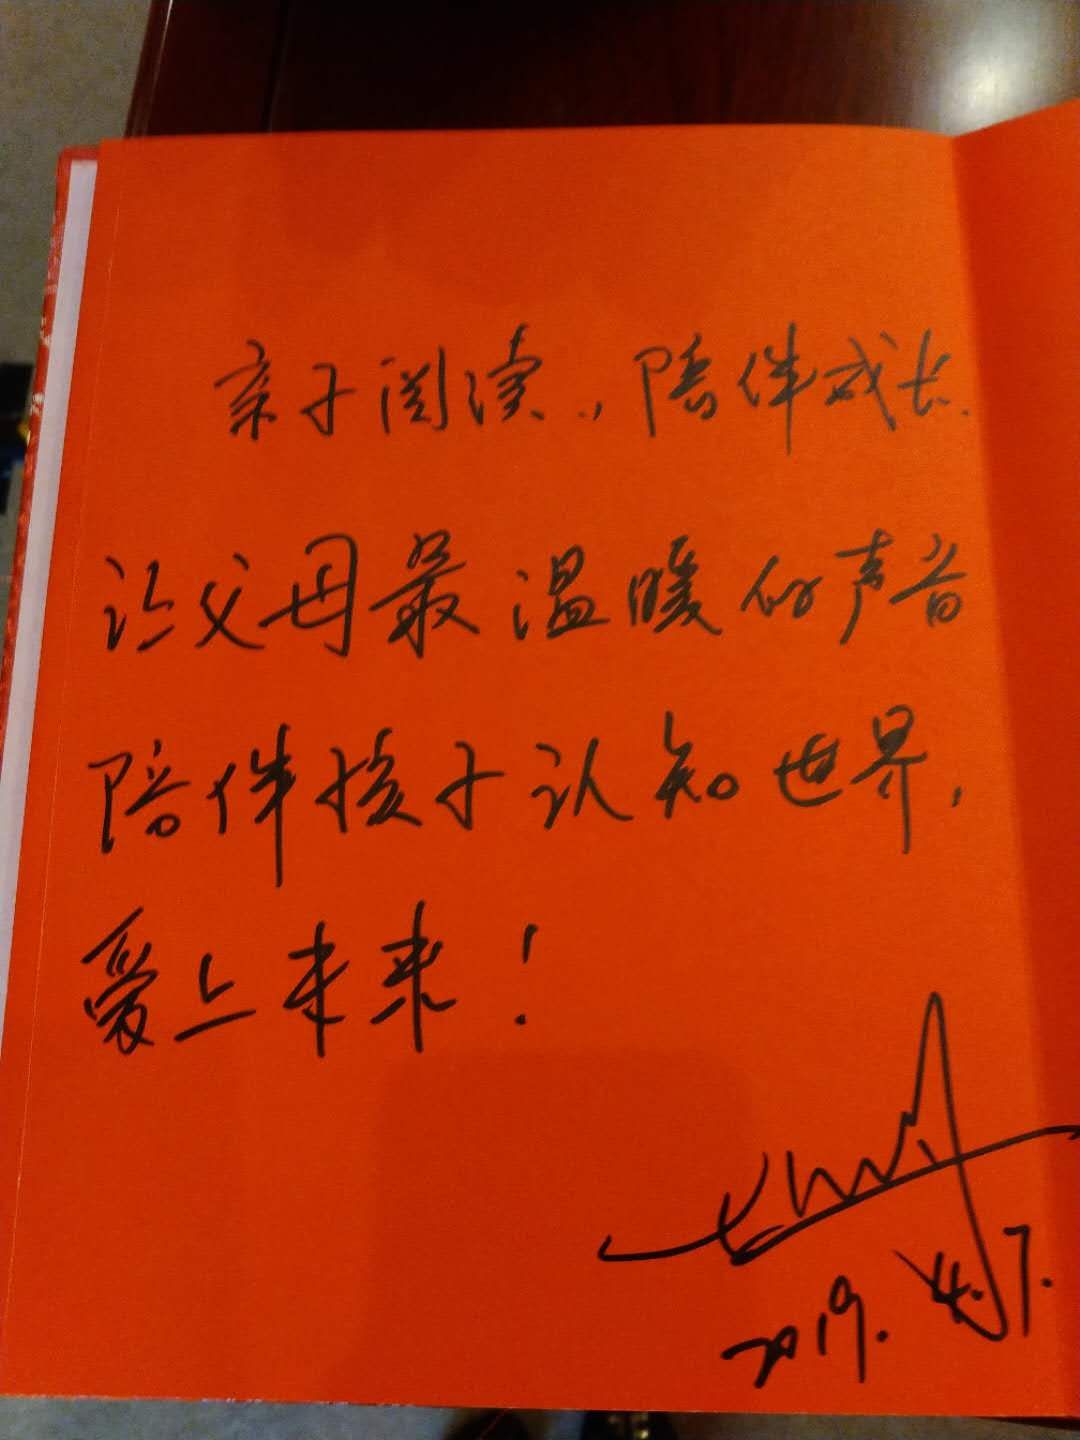 亲子阅读，陪伴成长.
让父母最温暖的声音
陪伴孩子认知世界，
爱上未来！
2019.4.7.